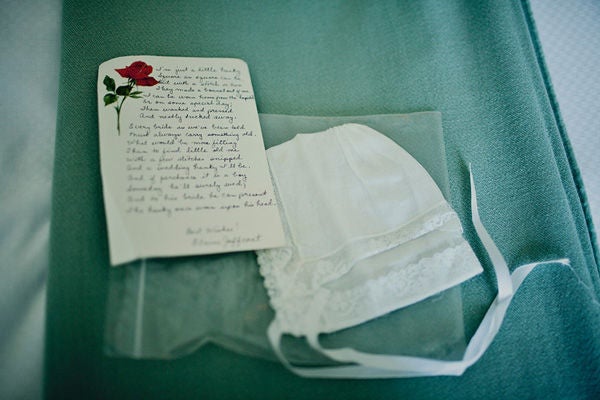 I'm just a little hanky
Square as square can be
But with a stitch or two
They made a bonnet out of me
I can be worn home from the hospital
Or on some special day;
Then washed and pressed
And neatly tucked away.
Every bride so we've been told
Must always carry something old.
What would be more fitting
Than to find little old me
With a few stitches snipped
And a wedding hanky I'll be.
And if perchance it is a boy
Someday he'll surely wed;
And so his bride he can present
The hanky once worn upon his head.
Best Wishes